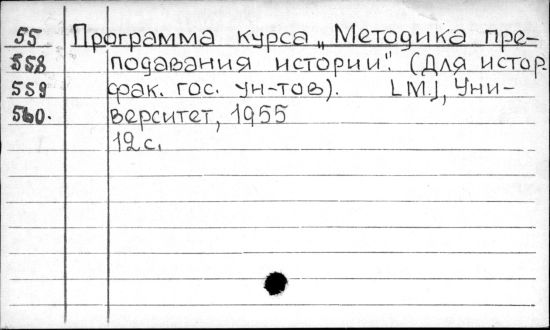 55 Программа курса „Методика пре-
558 подавания истории". (Для истор.
559 фак. гос. ун-тов). [М.], Уни-
560. верситет, 1955
12 с.